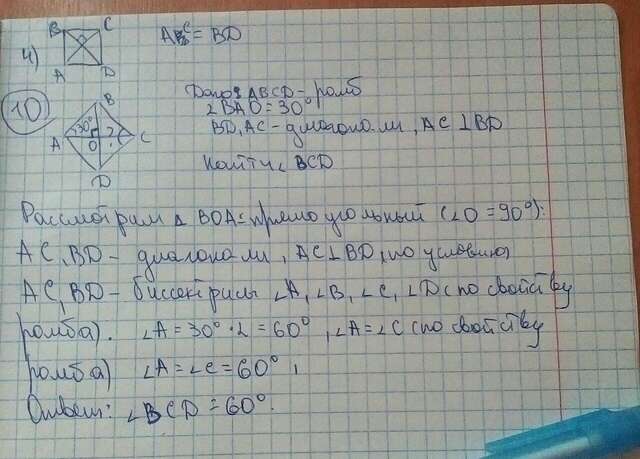 B C
4) A D
AC = BD
10
B
30° ?
A O C
D
Дано: ABCD - ромб
∠BAO = 30°
BD, AC - диагонали, AC ⊥ BD
Найти ∠ BCD
Рассмотрим Δ BOA = прямоугольный (∠O = 90°):
AC, BD - диагонали, AC ⊥ BD, по условию
AC, BD - биссектрисы ∠A, ∠B, ∠C, ∠D (по свойству
ромба). ∠A = 30° · 2 = 60°, ∠A = ∠C (по свойству
ромба) ∠A = ∠C = 60°,
Ответ: ∠BCD = 60°.